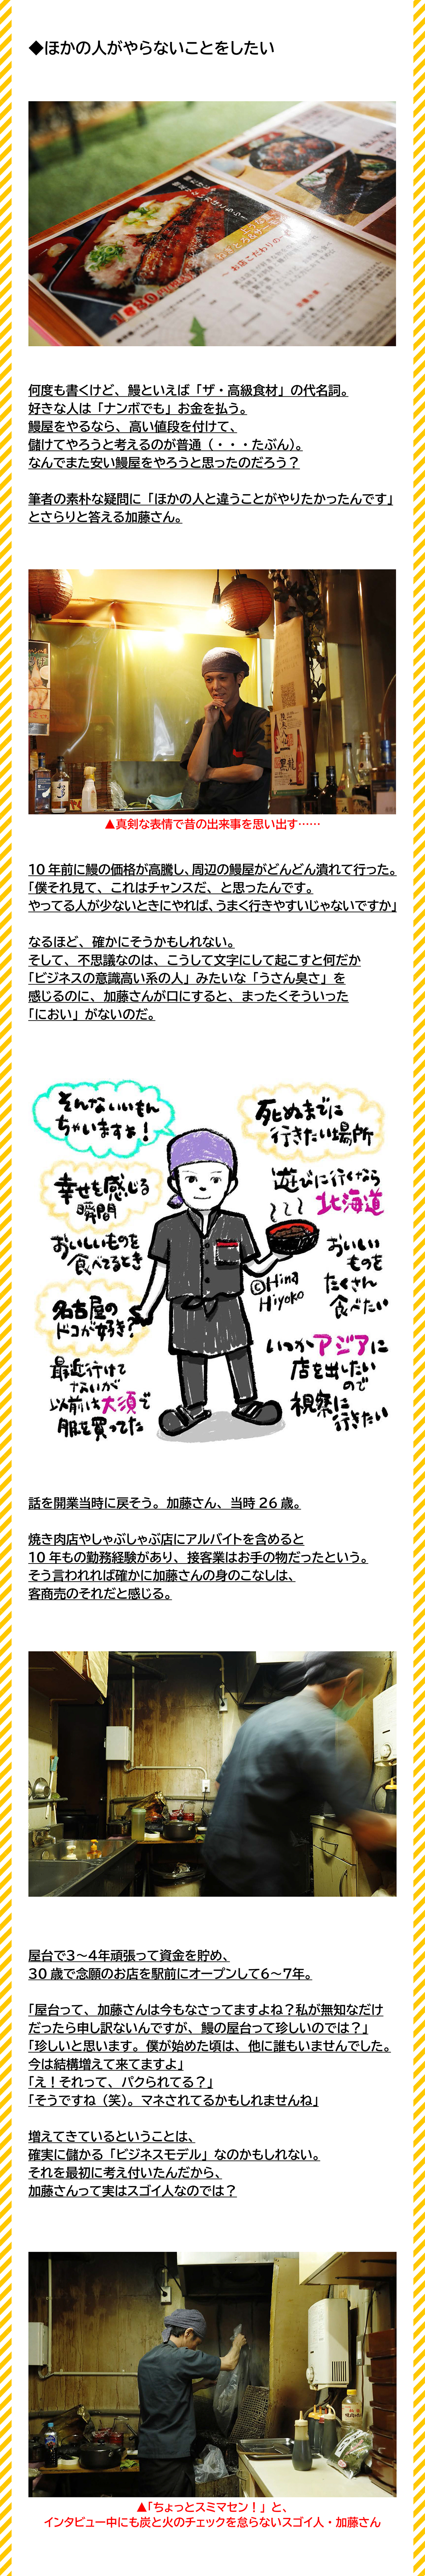 ◆ほかの人がやらないことをしたい
1880円
何度も書くけど、鰻といえば「ザ・高級食材」の代名詞。
好きな人は「ナンボでも」お金を払う。
鰻屋をやるなら、高い値段を付けて、
儲けてやろうと考えるのが普通（・・・たぶん）。
なんでまた安い鰻屋をやろうと思ったのだろう？
筆者の素朴な疑問に「ほかの人と違うことがやりたかったんです」
とさらりと答える加藤さん。
黒龍
▲真剣な表情で昔の出来事を思い出す……
10年前に鰻の価格が高騰し、周辺の鰻屋がどんどん潰れて行った。
「僕それ見て、これはチャンスだ、と思ったんです。
やってる人が少ないときにやれば、うまく行きやすいじゃないですか」
なるほど、確かにそうかもしれない。
そして、不思議なのは、こうして文字にして起こすと何だか
「ビジネスの意識高い系の人」みたいな「うさん臭さ」を
感じるのに、加藤さんが口にすると、まったくそういった
「におい」がないのだ。
そんないいもん
ちゃいますねぇ！
死ぬまでに
行きたい場所
幸せを感じる
瞬間
おいしいものを
食べてるとき
遊びに行くなら
北海道
おいしい
ものを
たくさん
食べたい
©Hina
Hiyoko
名古屋の
ドコが好き？
最近行けて
ないが
以前は大須で
服を買ってた
いつかアジアに
店を出したい
ので
視察に
行きたい
話を開業当時に戻そう。加藤さん、当時26歳。
焼き肉店やしゃぶしゃぶ店にアルバイトを含めると
10年もの勤務経験があり、接客業はお手の物だったという。
そう言われれば確かに加藤さんの身のこなしは、
客商売のそれだと感じる。
屋台で3～4年頑張って資金を貯め、
30歳で念願のお店を駅前にオープンして6～7年。
「屋台って、加藤さんは今もなさってますよね？私が無知なだけ
だったら申し訳ないんですが、鰻の屋台って珍しいのでは？」
「珍しいと思います。僕が始めた頃は、他に誰もいませんでした。
今は結構増えて来てますよ」
「え！それって、パクられてる？」
「そうですね（笑）。マネされてるかもしれませんね」
増えてきているということは、
確実に儲かる「ビジネスモデル」なのかもしれない。
それを最初に考え付いたんだから、
加藤さんって実はスゴイ人なのでは？
▲「ちょっとスミマセン！」と、
インタビュー中にも炭と火のチェックを怠らないスゴイ人・加藤さん